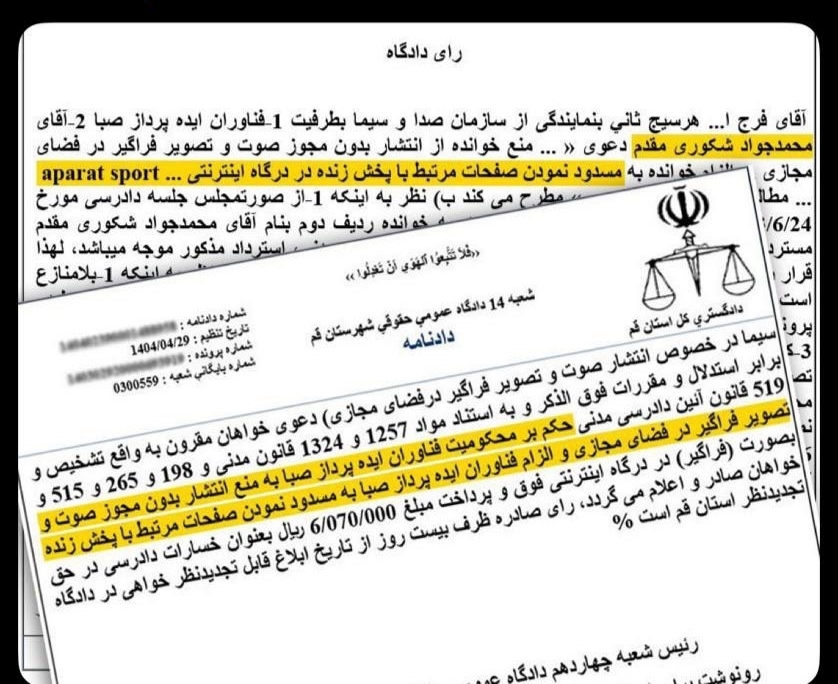 رای دادگاه
آقای فرج ا... هرسیج ثاني بنمایندگی از سازمان صدا و سیما بطرفیت 1-فناوران ایده پرداز صبا 2-آقای
محمدجواد شکوری مقدم دعوی « ... منع خوانده از انتشار بدون مجوز صوت و تصویر فراگیر در فضای
مجازی خوانده به مسدود نمودن صفحات مرتبط با پخش زنده در درگاه اینترنتی ... aparat sport
... مطرح می کند ب) نظر به اینکه 1-از صورتمجلس جلسه دادرسی مورخ
6/24/ خوانده ردیف دوم بنام آقای محمدجواد شکوری مقدم
مسترد استرداد مذکور موجه میباشد، لهذا
قرار اینکه 1-بلامنازع
است
3-
«فَلَا تَتَّبِعُوا الْهَوَىٰ أَنْ تَعْدِلُوا»
دادگستري کل استان قم
شعبه 14 دادگاه عمومي حقوقي شهرستان قم
دادنامه
شماره دادنامه :
تاریخ تنظیم : 1404/04/29
شماره پرونده :
شماره بایگاني شعبه : 0300559
سیما در خصوص انتشار صوت و تصویر فراگیر درفضای مجازی) دعوی خواهان مقرون به واقع تشخیص و
برابر استدلال و مقررات فوق الذکر و به استناد مواد 1257 و 1324 قانون مدنی و 198 و 265 و 515 و
519 قانون آئین دادرسی مدنی حکم بر محکومیت فناوران ایده پرداز صبا به منع انتشار بدون مجوز صوت و
تصویر فراگیر در فضای مجازی و الزام فناوران ایده پرداز صبا به مسدود نمودن صفحات مرتبط با پخش زنده
بصورت (فراگیر) در درگاه اینترنتی فوق و پرداخت مبلغ 6/070/000 ریال بعنوان خسارات دادرسی در حق
خواهان صادر و اعلام می گردد، رای صادره ظرف بیست روز از تاریخ ابلاغ قابل تجدیدنظر خواهی در دادگاه
تجدیدنظر استان قم است %
رئیس شعبه چهاردهم دادگاه
رونوشت